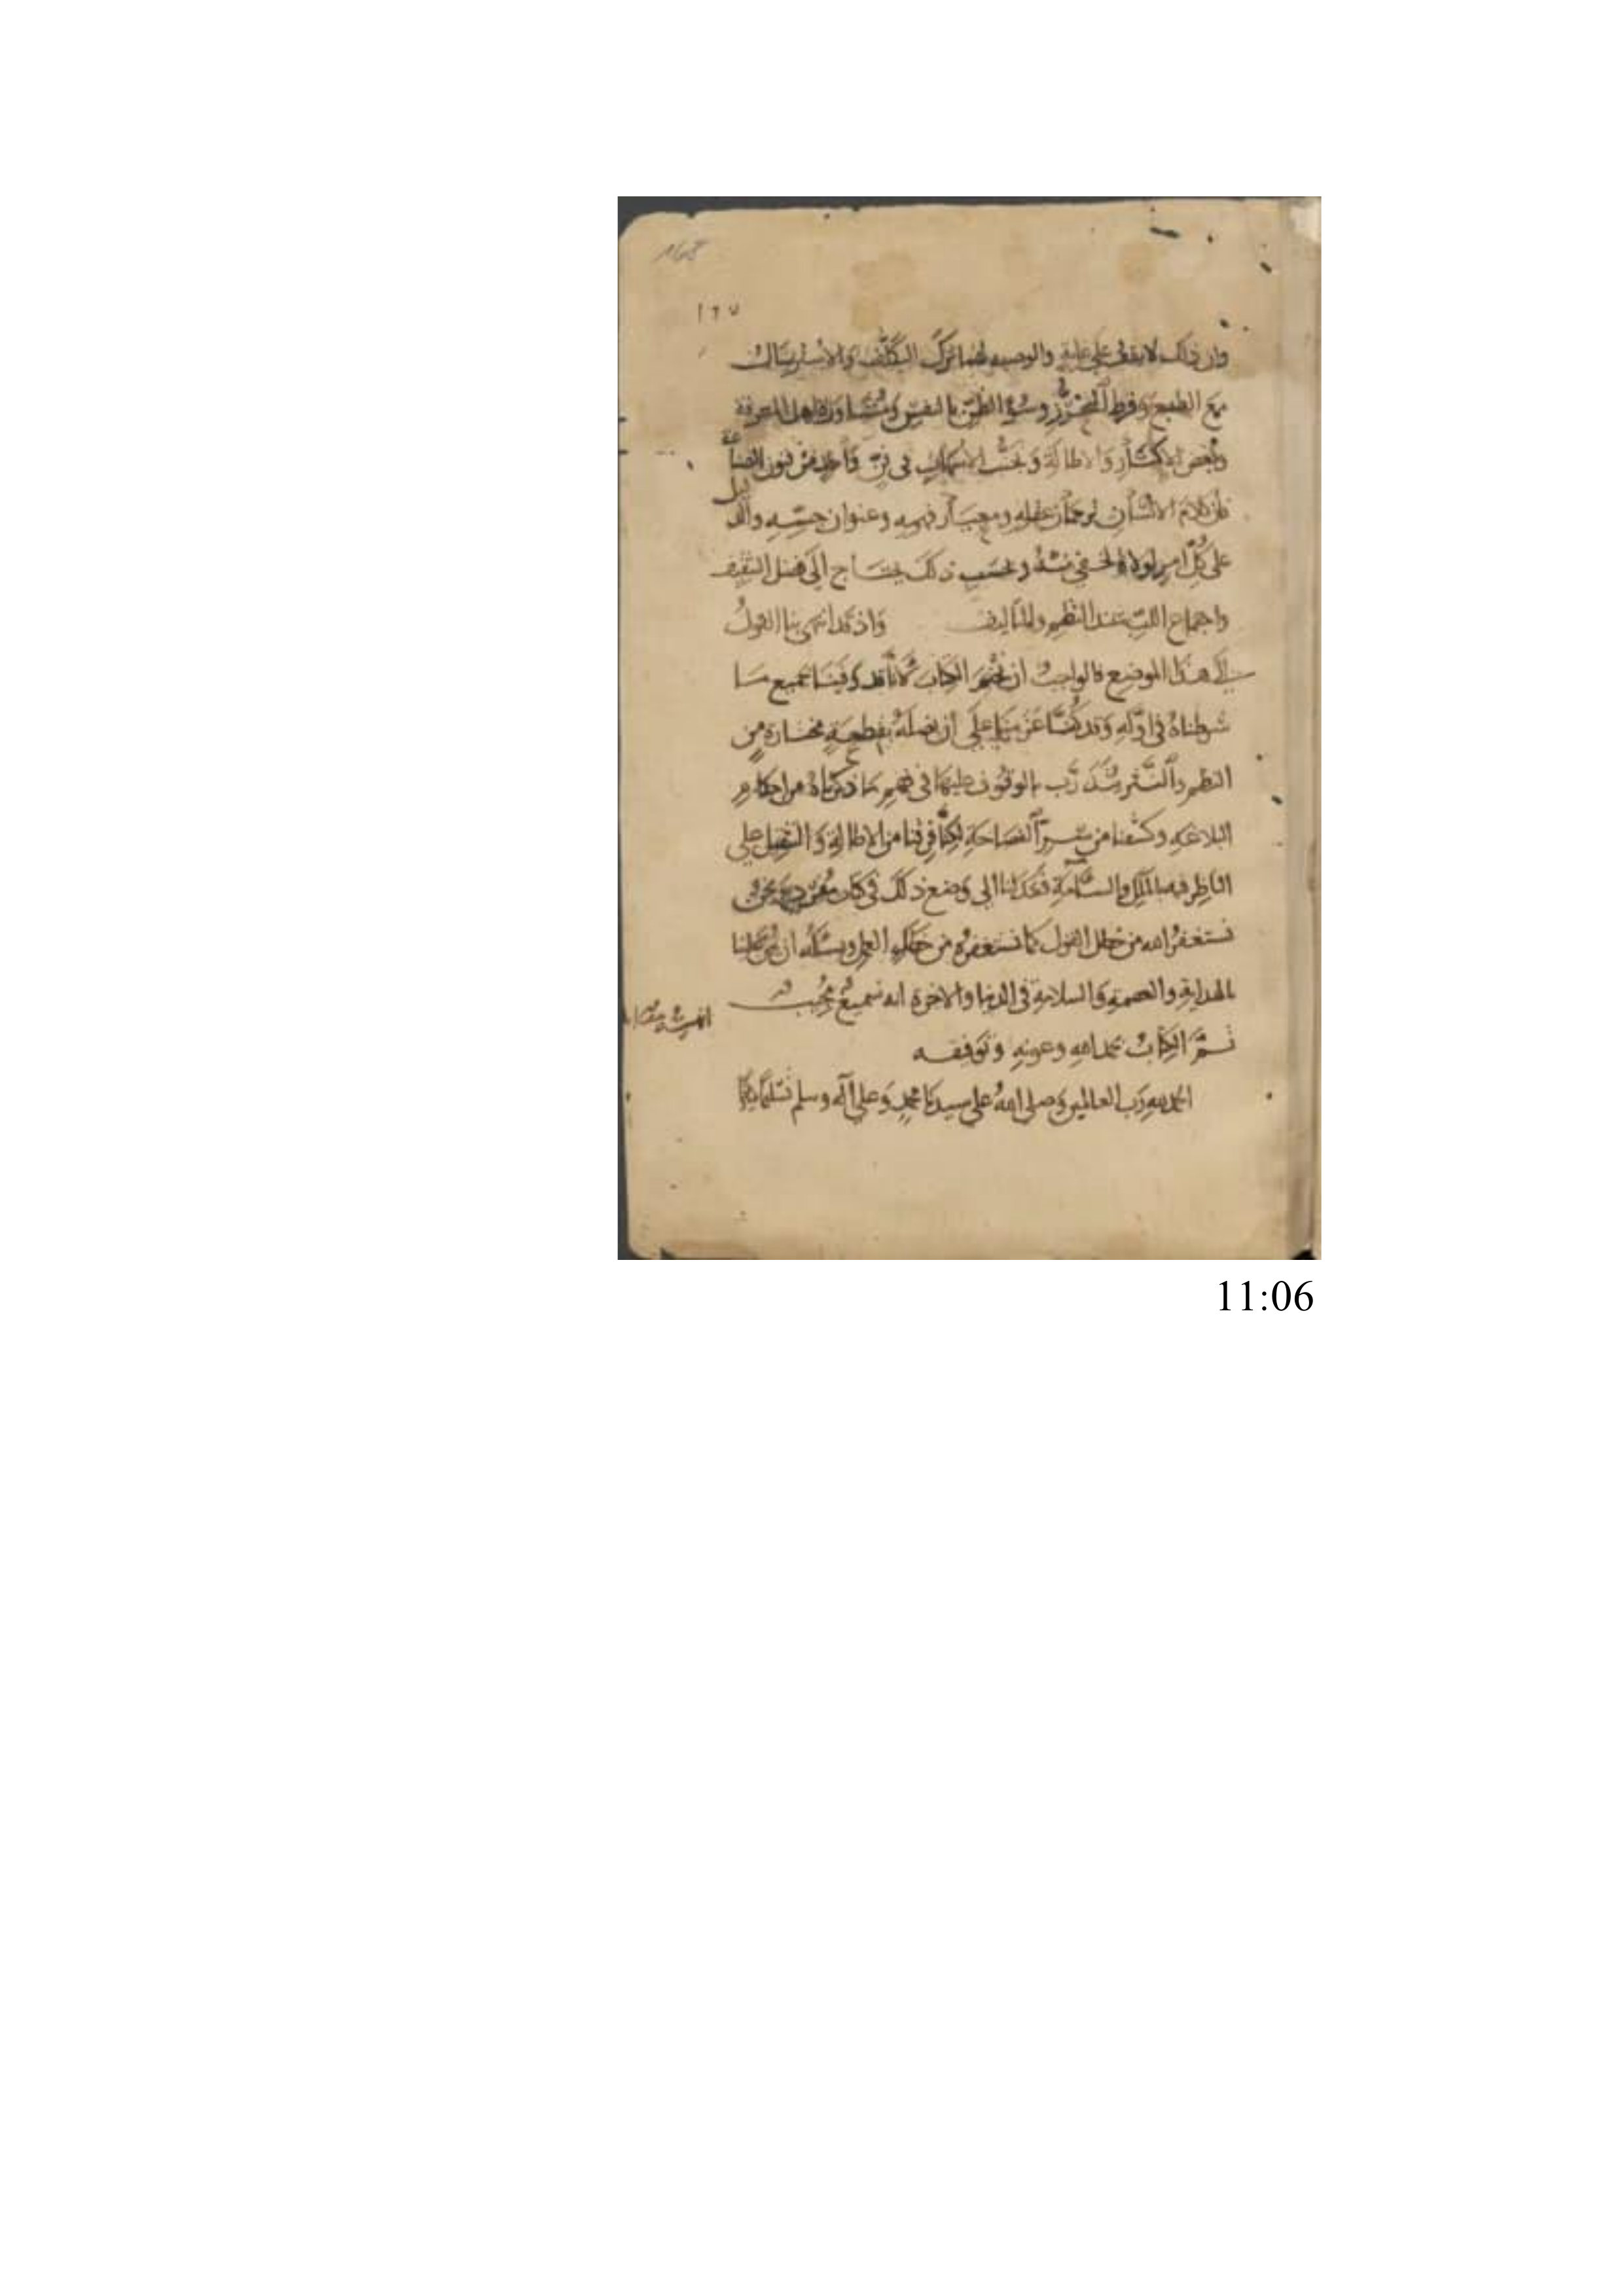 168
١٦٧
وان ذلك لا يقف على غاية والوصيه لهما ترك التكلف والاسترسال
مع الطبع وفرط التحرز وسوء الظن بالنفس ومشاورة اهل المعرفة
وبغض الاكثار والاطالة وتجنب الاسهاب في فن واحد من فنون الصناعة
فان كلام الانسان ترجمان عقله ومعيار فهمه وعنوان حسه والدليل
على كل امر لولاه لخفي منه وبحسب ذلك يحتاج الى فضل التثقيف
واجماع اللب عند النظم والتاليف واذ قد انتهى بنا القول
الى هذا الموضع فالواجب ان نختم الكتاب لاننا قد وفينا بجميع ما
شرطناه في اوله وقد كنا عزمنا على ان نصله بقطعة مختارة من
النظم والنثر يتدرب بالوقوف عليها في فهم ما ذكرناه من احكام
البلاغه وكشفنا من سر الفصاحة لكنا فرقنا من الاطالة والتثقيل على
الناظر فيه بالملل والسآمة فعدلنا الى وضع ذلك في كتاب مفرد ونحن
نستغفر الله من خطل القول كما نستغفره من خطل العمل ونسئله ان يمن علينا
بالهداية والعصمة والسلامة في الدنيا والاخرة انه سميع مجيب
تم الكتاب بحمد الله وعونه وتوفيقه
الحمد لله رب العالمين وصلى الله على سيدنا محمد وعلى آله وسلم تسليما
11:06